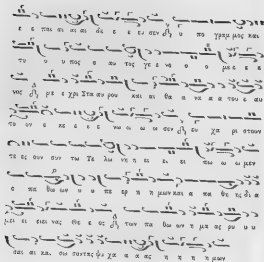 ε ε παι αι αι δε ε ε ευ σεν υ πο γραμ μος και
τυ υ υ πος ο αυ τος γε ε νο ο ο ο με ε ε
νος με ε χρι Στα αυ ρου και αι θα α να α α του ε αυ
το υν ε κε ε ε ε νω ω ω ο σεν ευ χα ρι στουν
τε ει ουν συν τω Σε λω νη ει ει ει πω ω ω μεν
ο πα θω ων υ υ πε ερ η η μων και α πα θη ς δι α
μει ει ει νας Θε ε ος των πα θω ων η μας ρυ υ υ
σαι αι και σω σον τας ψυ χα α α ας η η η μων